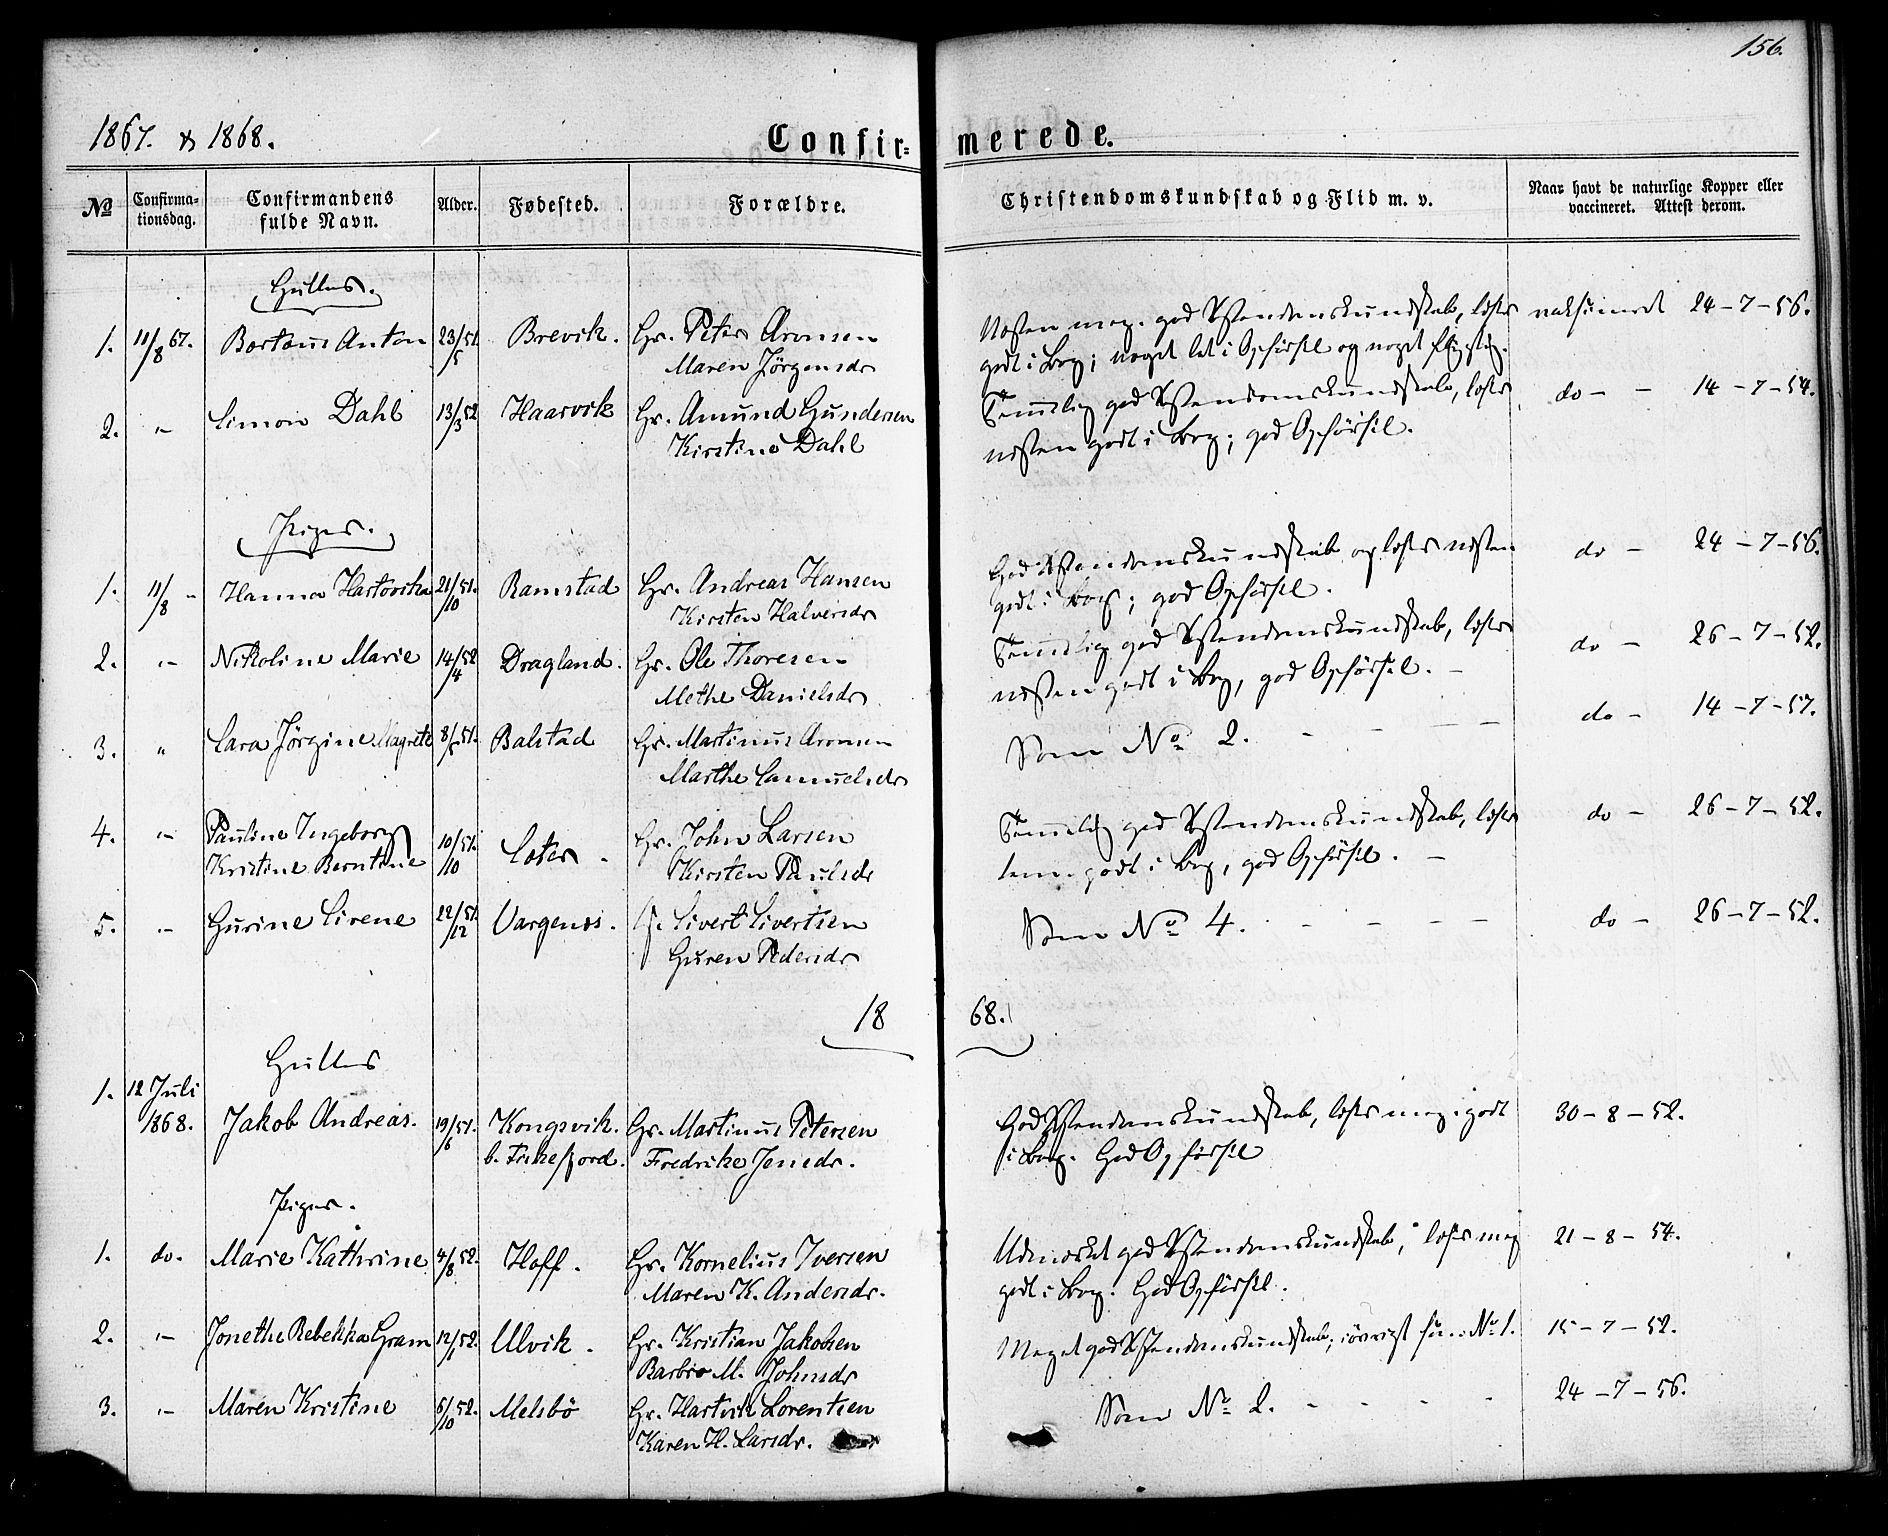 156.
1867. & 1868.
Confir= merede.
No
Confirma-
tionsdag.
Confirmandens
fulde Navn.
Alder.
Fødested.
Forældre.
Christendomskundskab og Flid m. v.
Naar havt de naturlige Kopper eller
vaccineret. Attest derom.
Gutter.
1. 11/8 67. Bertæus Anton 23/5 51 Brevik. Gr. Peter Aronsen
Maren Jörgensdr
Næsten meg. god Xstendomskundskab, læser
godt i Bog; noget let i Opførsel og noget
vaksineret 24-7-56.
2. "- Simon Dahl 13/3 52 Haarvik Gr. Amund Gundersen
Kirstine Dahl
Temmelig god Xstendomskundskab, læser
næsten godt i Bog; god Opførsel.
do - - 14-7-54.
Piger.
1. 11/8 - Hanna Hartvika 21/10 51. Ramstad Gr. Andreas Hansen
Kirsten Halversdr
God Xstendomskundskab og læser næsten
godt i Bog; god Opførsel.
do - 24-7-56.
2. "- Nikoline Marie 14/4 52 Dragland. Gr. Ole Thoresen
Methe Danielsdr
Temmelig god Xstendomskundskab, læser
næsten godt i Bog, god Opførsel. -
do - 26-7-52.
3. " Sara Jörgine Magrete 8/5 51. Balstad Gr. Martinus Aronsen
Marthe Samuelsdr
Som No 2. - - - -
do - 14-7-57.
4. "- Pauline Ingeborg
Kristine Berntine 10/10 51. Sæter. Gr. John Larsen
Kirsten Paulsdr
Temmelig god Xstendomskundskab, læser
tem. godt i Bog, god Opførsel. -
do - 26-7-52.
5. "- Gurine Sirene 22/12 51. Vargenæs. G. Sivert Sivertsen
Guren Pedersdr
Som No 4. - - - -
do - 26-7-52.
18 68.
Gutter
1. 12 Juli
1868. Jakob Andreas. 19/6 51. Kongsvik.
b. Fiskefjord. Gr. Martinus Petersen
Fredrike Jensdr.
God Xstendomskundskab, læser meg. godt
i Bog. God Opførsel
30-8-52.
Piger.
1. do. Marie Kathrine 4/8 52. Hoff. Gr. Kornelius Iversen
Maren K. Andersdr.
Udmærket god Xstendomskundskab, læser meg
godt i Bog. God Opførsel.
21-8-54.
2. "- Jonethe Rebekka Gram 12/1 52. Ulvik. Gr. Kristian Jakobsen
Barbro M. Johnsdr
Meget god Xstendomskundskab; iøvrigt som No 1.
15-7-52.
3. "- Maren Kristine 6/10 52. Melsbö Gr. Hartvik Lorentsen
Karen H. Larsdr.
Som No 2. - - - -
24-7-56.